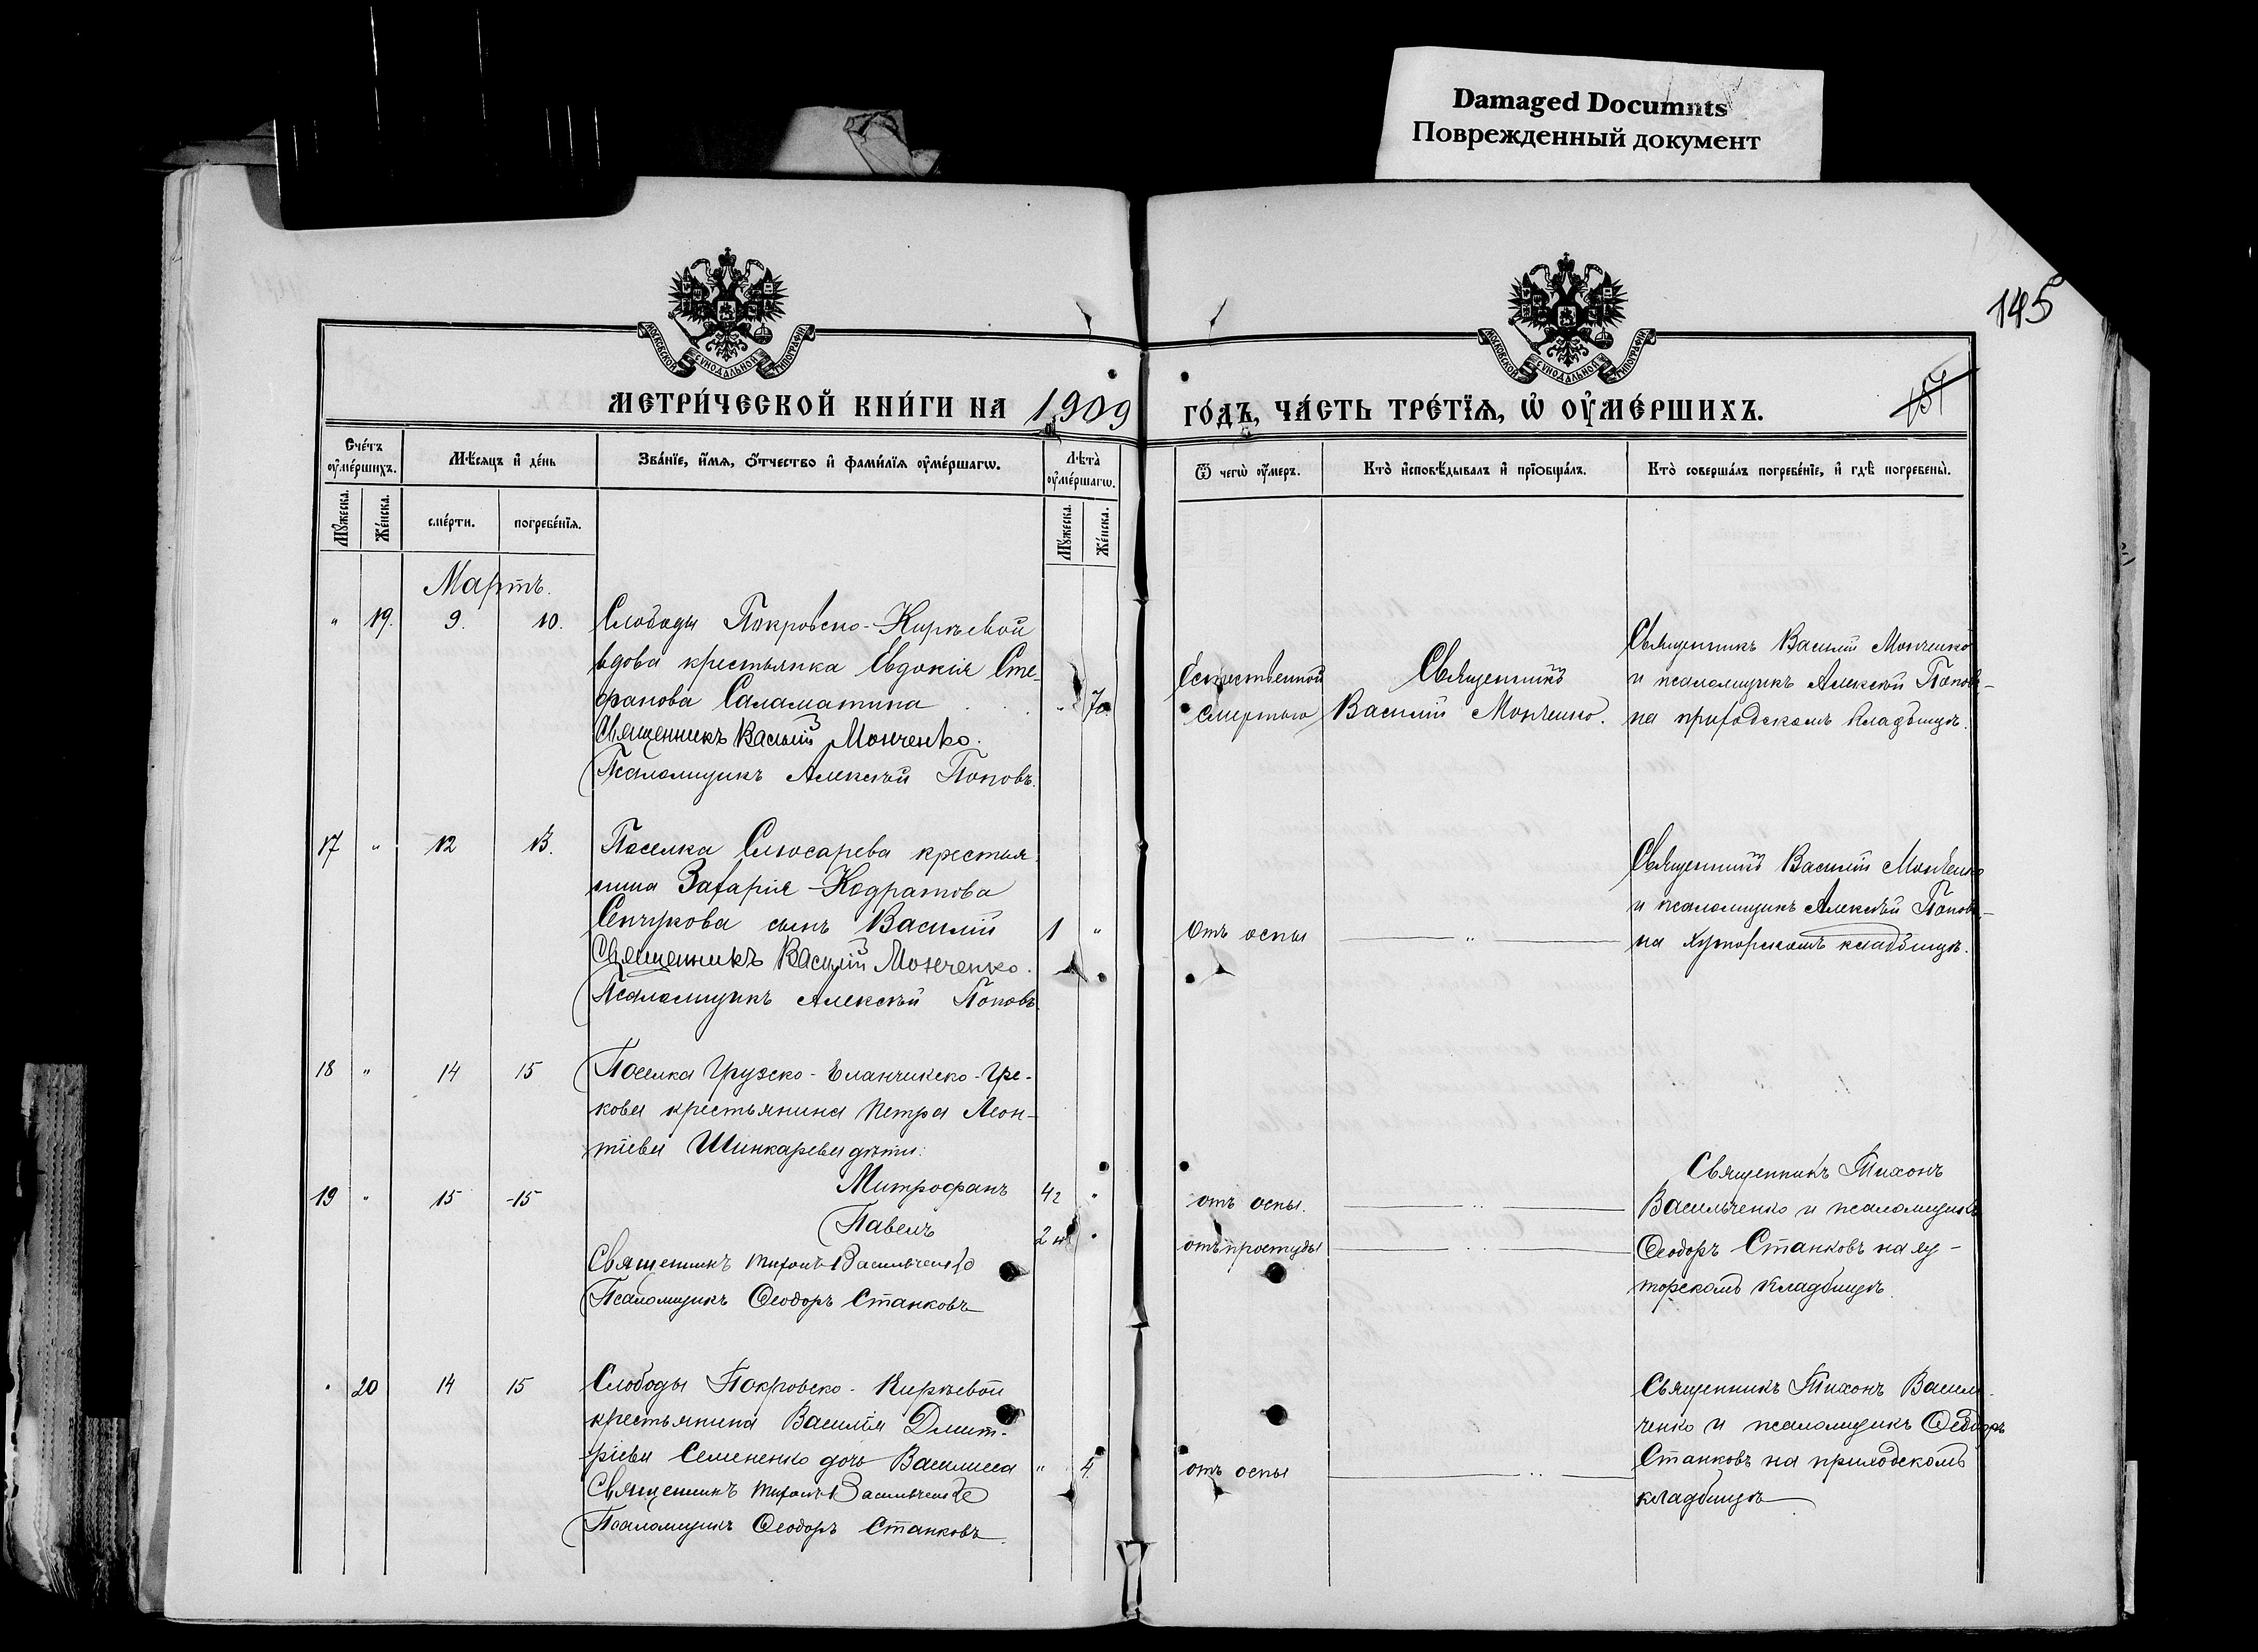 Damaged Documnts
Поврежденный документ
145
МОСКОВСКОЙ СУНОДАЛЬНОЙ ТИПОГРАФІИ
МОСКОВСКОЙ СУНОДАЛЬНОЙ ТИПОГРАФІИ
МЕТРИ́ЧЕСКОЙ КНИ́ГИ НА 1909 ГО́ДЪ, ЧА́СТЬ ТРЕ́ТЇѦ, Ѡ҆ ОУ҆МЕ́РШИХЪ.
157
Сче́тъ оу҆ме́ршихъ.
Мѣ́сяцъ и҆ де́нь
Зва́нїе, и҆́мѧ, ѻ҆́тчество и҆ фами́лїѧ оу҆ме́ршагѡ.
Лѣ́та оу҆ме́ршагѡ.
Ѿ чегѡ̀ оу҆́меръ.
Кто̀ и҆сповѣ́дывалъ и҆ прїѻбща́лъ.
Кто̀ соверша́лъ погребе́нїе, и҆ гдѣ̀ погребены̀.
Мꙋ́жеска.
Же́нска.
сме́рти.
погребе́нїѧ.
Мꙋ́жеска.
Же́нска.
Мартъ.
" 19. 9. 10. Слободы Покровско-Киръевой
вдова крестьянка Евдокія Сте-
фанова Саламатина " 70.
Священникъ Василій Монченко.
Псаломщикъ Алексѣй Поповъ.
Естественной
смертью
Священникъ
Василій Монченко.
Священникъ Василій Монченко
и псаломщикъ Алексѣй Поповъ-
на приходскомъ кладбищѣ.
17 " 12 13. Поселка Слюсарева крестья-
нина Захарія Кодратова
Сенчукова сынъ Василій 1 "
Священникъ Василій Монченко.
Псаломщикъ Алексѣй Поповъ.
отъ оспы — " —
Священникъ Василій Монченко
и псаломщикъ Алексѣй Поповъ-
на хуторскомъ кладбищѣ.
18 " 14 15 Поселка Грузско-Еланчикско-Гре-
кова крестьянина Петра Леон-
тіева Шинкарева дѣти:
19 " 15 -15 Митрофанъ "
Павелъ "
Священникъ Тихонъ Васильченко
Псаломщикъ Ѳеодоръ Станковъ
отъ оспы. — " —
отъ простуды — " —
Священникъ Тихонъ
Васильченко и псаломщикъ
Ѳеодоръ Станковъ на ху-
торскомъ кладбищѣ.
" 20 14 15 Слободы Покровско-Киръевой
крестьянина Василія Дмит-
ріева Семененко дочь Василиса " 4.
Священникъ Тихонъ Васильченко
Псаломщикъ Ѳеодоръ Станковъ.
отъ оспы — " —
Священникъ Тихонъ Василь-
ченко и псаломщикъ Ѳеодоръ
Станковъ на приходскомъ
кладбищѣ